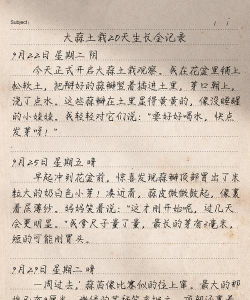 Subject:
大蒜土栽20天生长全记录
9月22日 星期二 阴
今天正式开启大蒜土栽观察。我在花盆里铺上
松软土，把掰好的蒜瓣竖着插进土里，芽口朝上，
浇了点水。这些蒜瓣在土里显得黄黄的，像没睡醒
的小娃娃。我轻轻对它们说：“要好好喝水，快点
发芽呀！”
9月25日 星期五 晴
早起冲到花盆前，惊喜发现蒜瓣顶部冒出了米
粒大的奶白色小芽！凑近看，蒜皮微微鼓起，像裹
着层薄纱。妈妈笑着说：“这才刚开始呢，过几天
会更明显。”我拿尺子量了量，最长的芽有2毫米，
短的可能刚冒头。
9月29日 星期二 晴
一周过去，蒜苗像比赛似的往上窜。最大的那